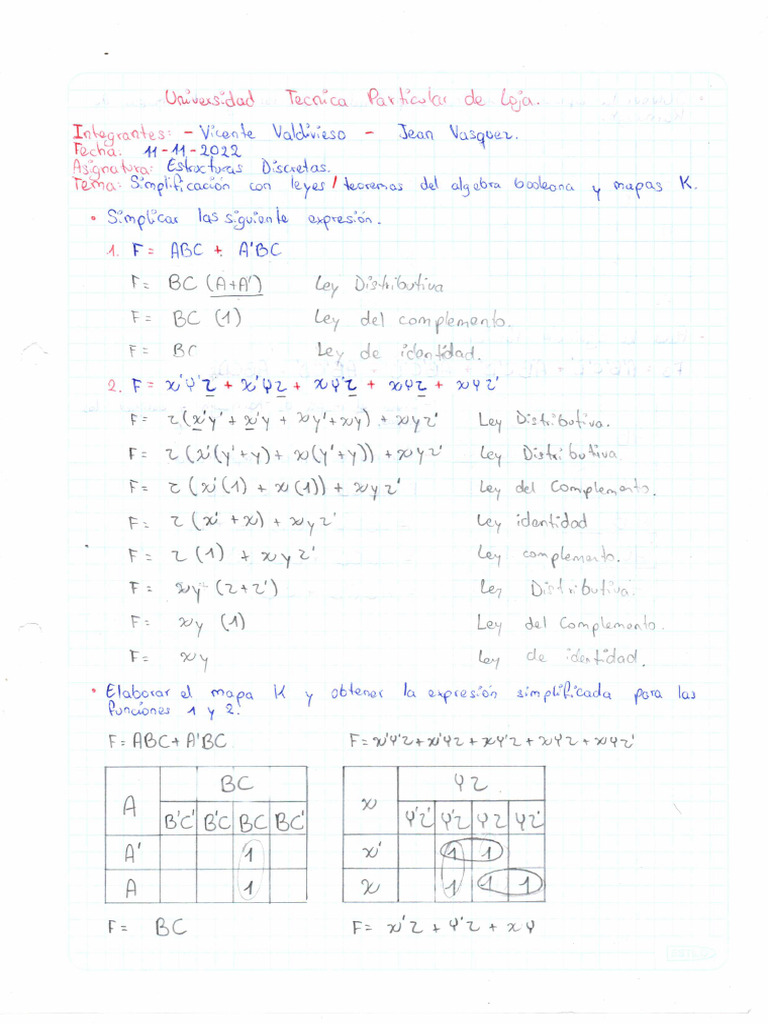 Universidad Tecnica Particular de Loja.
Integrantes: - Vicente Valdivieso - Jean Vasquez.
Fecha: 11-11-2022
Asignatura: Estructuras Discretas.
Tema: Simplificación con leyes/teoremas del algebra booleana y mapas K.
• Simplicar las siguiente expresión.
1. F = ABC + A'BC
F = BC (A+A') Ley Distributiva
F = BC (1) Ley del complemento.
F = BC Ley de identidad.
2. F = x'y'z + x'yz + xy'z + xyz + xyz'
F = z(x'y' + x'y + xy' + xy) + xyz' Ley Distributiva.
F = z(x'(y'+y) + x(y'+y)) + xyz' Ley Distributiva
F = z(x'(1) + x(1)) + xyz' Ley del Complemento.
F = z(x' + x) + xyz' Ley identidad
F = z(1) + xyz' Ley complemento.
F = xy (z+z') Ley Distributiva.
F = xy (1) Ley del Complemento.
F = xy Ley de identidad.
• Elaborar el mapa K y obtener la expresión simplificada para las
funciones 1 y 2.
F = ABC + A'BC F = x'y'z + x'yz + xy'z + xyz + xyz'
A BC
B'C' B'C BC BC'
A' 1
A 1
F = BC
x yz
y'z' y'z yz yz'
x' 1 1
x 1 1 1
F = x'z + y'z + xy